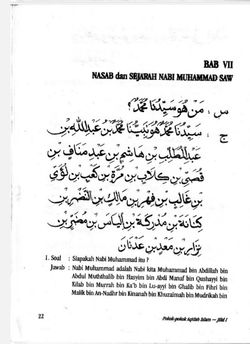 BAB VII
NASAB dan SEJARAH NABI MUHAMMAD SAW
س : مَنْ هُوَ سَيِّدُنَا مُحَمَّدٌ؟
ج : سَيِّدُنَا مُحَمَّدٌ هُوَ نَبِيُّنَا مُحَمَّدُ بْنُ عَبْدِ اللهِ بْنِ
عَبْدِ الْمُطَّلِبِ بْنِ هَاشِمِ بْنِ عَبْدِ مَنَافِ بْنِ
قُصَيِّ بْنِ كِلَابِ بْنِ مُرَّةَ بْنِ كَعْبِ بْنِ لُؤَيِّ
بْنِ غَالِبِ بْنِ فِهْرِ بْنِ مَالِكِ بْنِ النَّضْرِ بْنِ
كِنَانَةَ بْنِ مُدْرِكَةَ بْنِ إِلْيَاسَ بْنِ مُضَرَ بْنِ
نِزَارِ بْنِ مَعَدِّ بْنِ عَدْنَانَ
1. Soal : Siapakah Nabi Muhammad itu ?
Jawab : Nabi Muhammad adalah Nabi kita Muhammad bin Abdillah bin
Abdul Muththalib bin Hasyim bin Abdi Manaf bin Qushayyi bin
Kilab bin Murrah bin Ka'b bin Lu-ayyi bin Ghalib bin Fihri bin
Malik bin An-Nadhr bin Kinanah bin Khuzaimah bin Mudrikah bin
22
Pokok-pokok Aqidah Islam — Jilid I